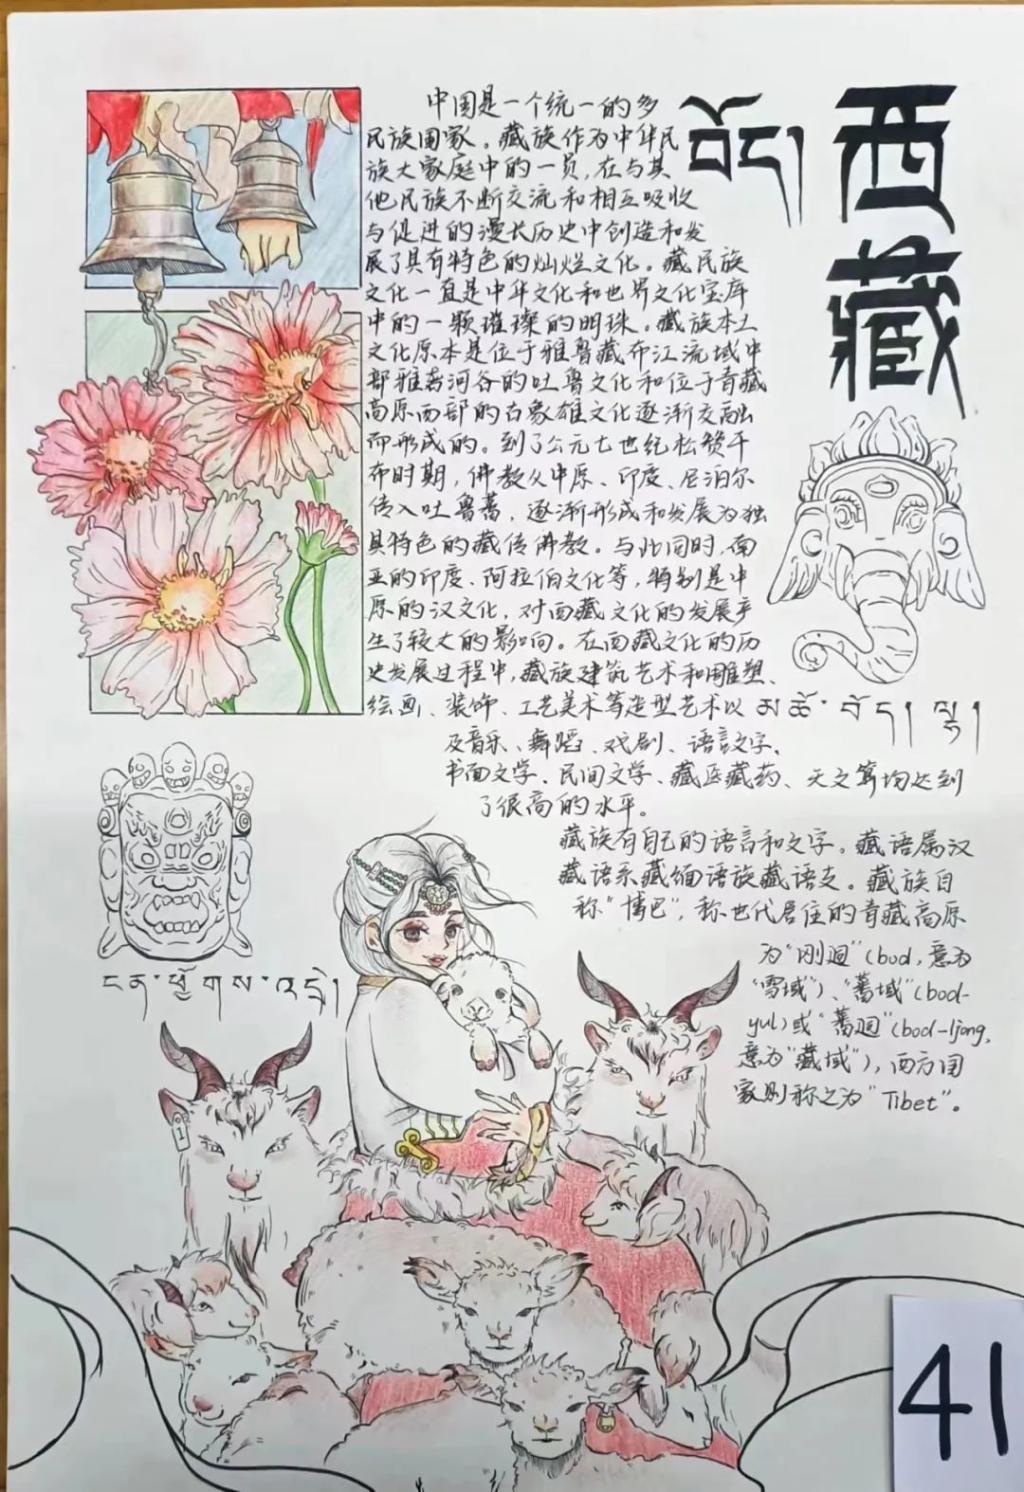 西藏
བོད།
中国是一个统一的多
民族国家。藏族作为中华民
族大家庭中的一员，在与其
他民族不断交流和相互吸收
与促进的漫长历史中创造和发
展了具有特色的灿烂文化。藏民族
文化一直是中华文化和世界文化宝库
中的一颗璀璨的明珠。藏族本土
文化原本是位于雅鲁藏布江流域中
部雅砻河谷的吐鲁文化和位于青藏
高原西部的古象雄文化逐渐交融
而形成的。到了公元七世纪松赞干
布时期，佛教从中原、印度、尼泊尔
传入吐鲁蕃，逐渐形成和发展为独
具特色的藏传佛教。与此同时，南
亚的印度、阿拉伯文化等，特别是中
原的汉文化，对西藏文化的发展产
生了较大的影响。在西藏文化的历
史发展过程中，藏族建筑艺术和雕塑、
绘画、装饰、工艺美术等造型艺术以
及音乐、舞蹈、戏剧、语言文字、
书面文学、民间文学、藏医藏药、天文算均达到
了很高的水平。
藏族有自己的语言和文字。藏语属汉
藏语系藏缅语族藏语支。藏族自
称“博巴”，称世代居住的青藏高原
为“刚迥”（bod，意为
“雪域”）、“蕃域”（bod-
yul）或“蕃迥”（bod-ljong，
意为“藏域”），西方国
家则称之为“Tibet”。
41